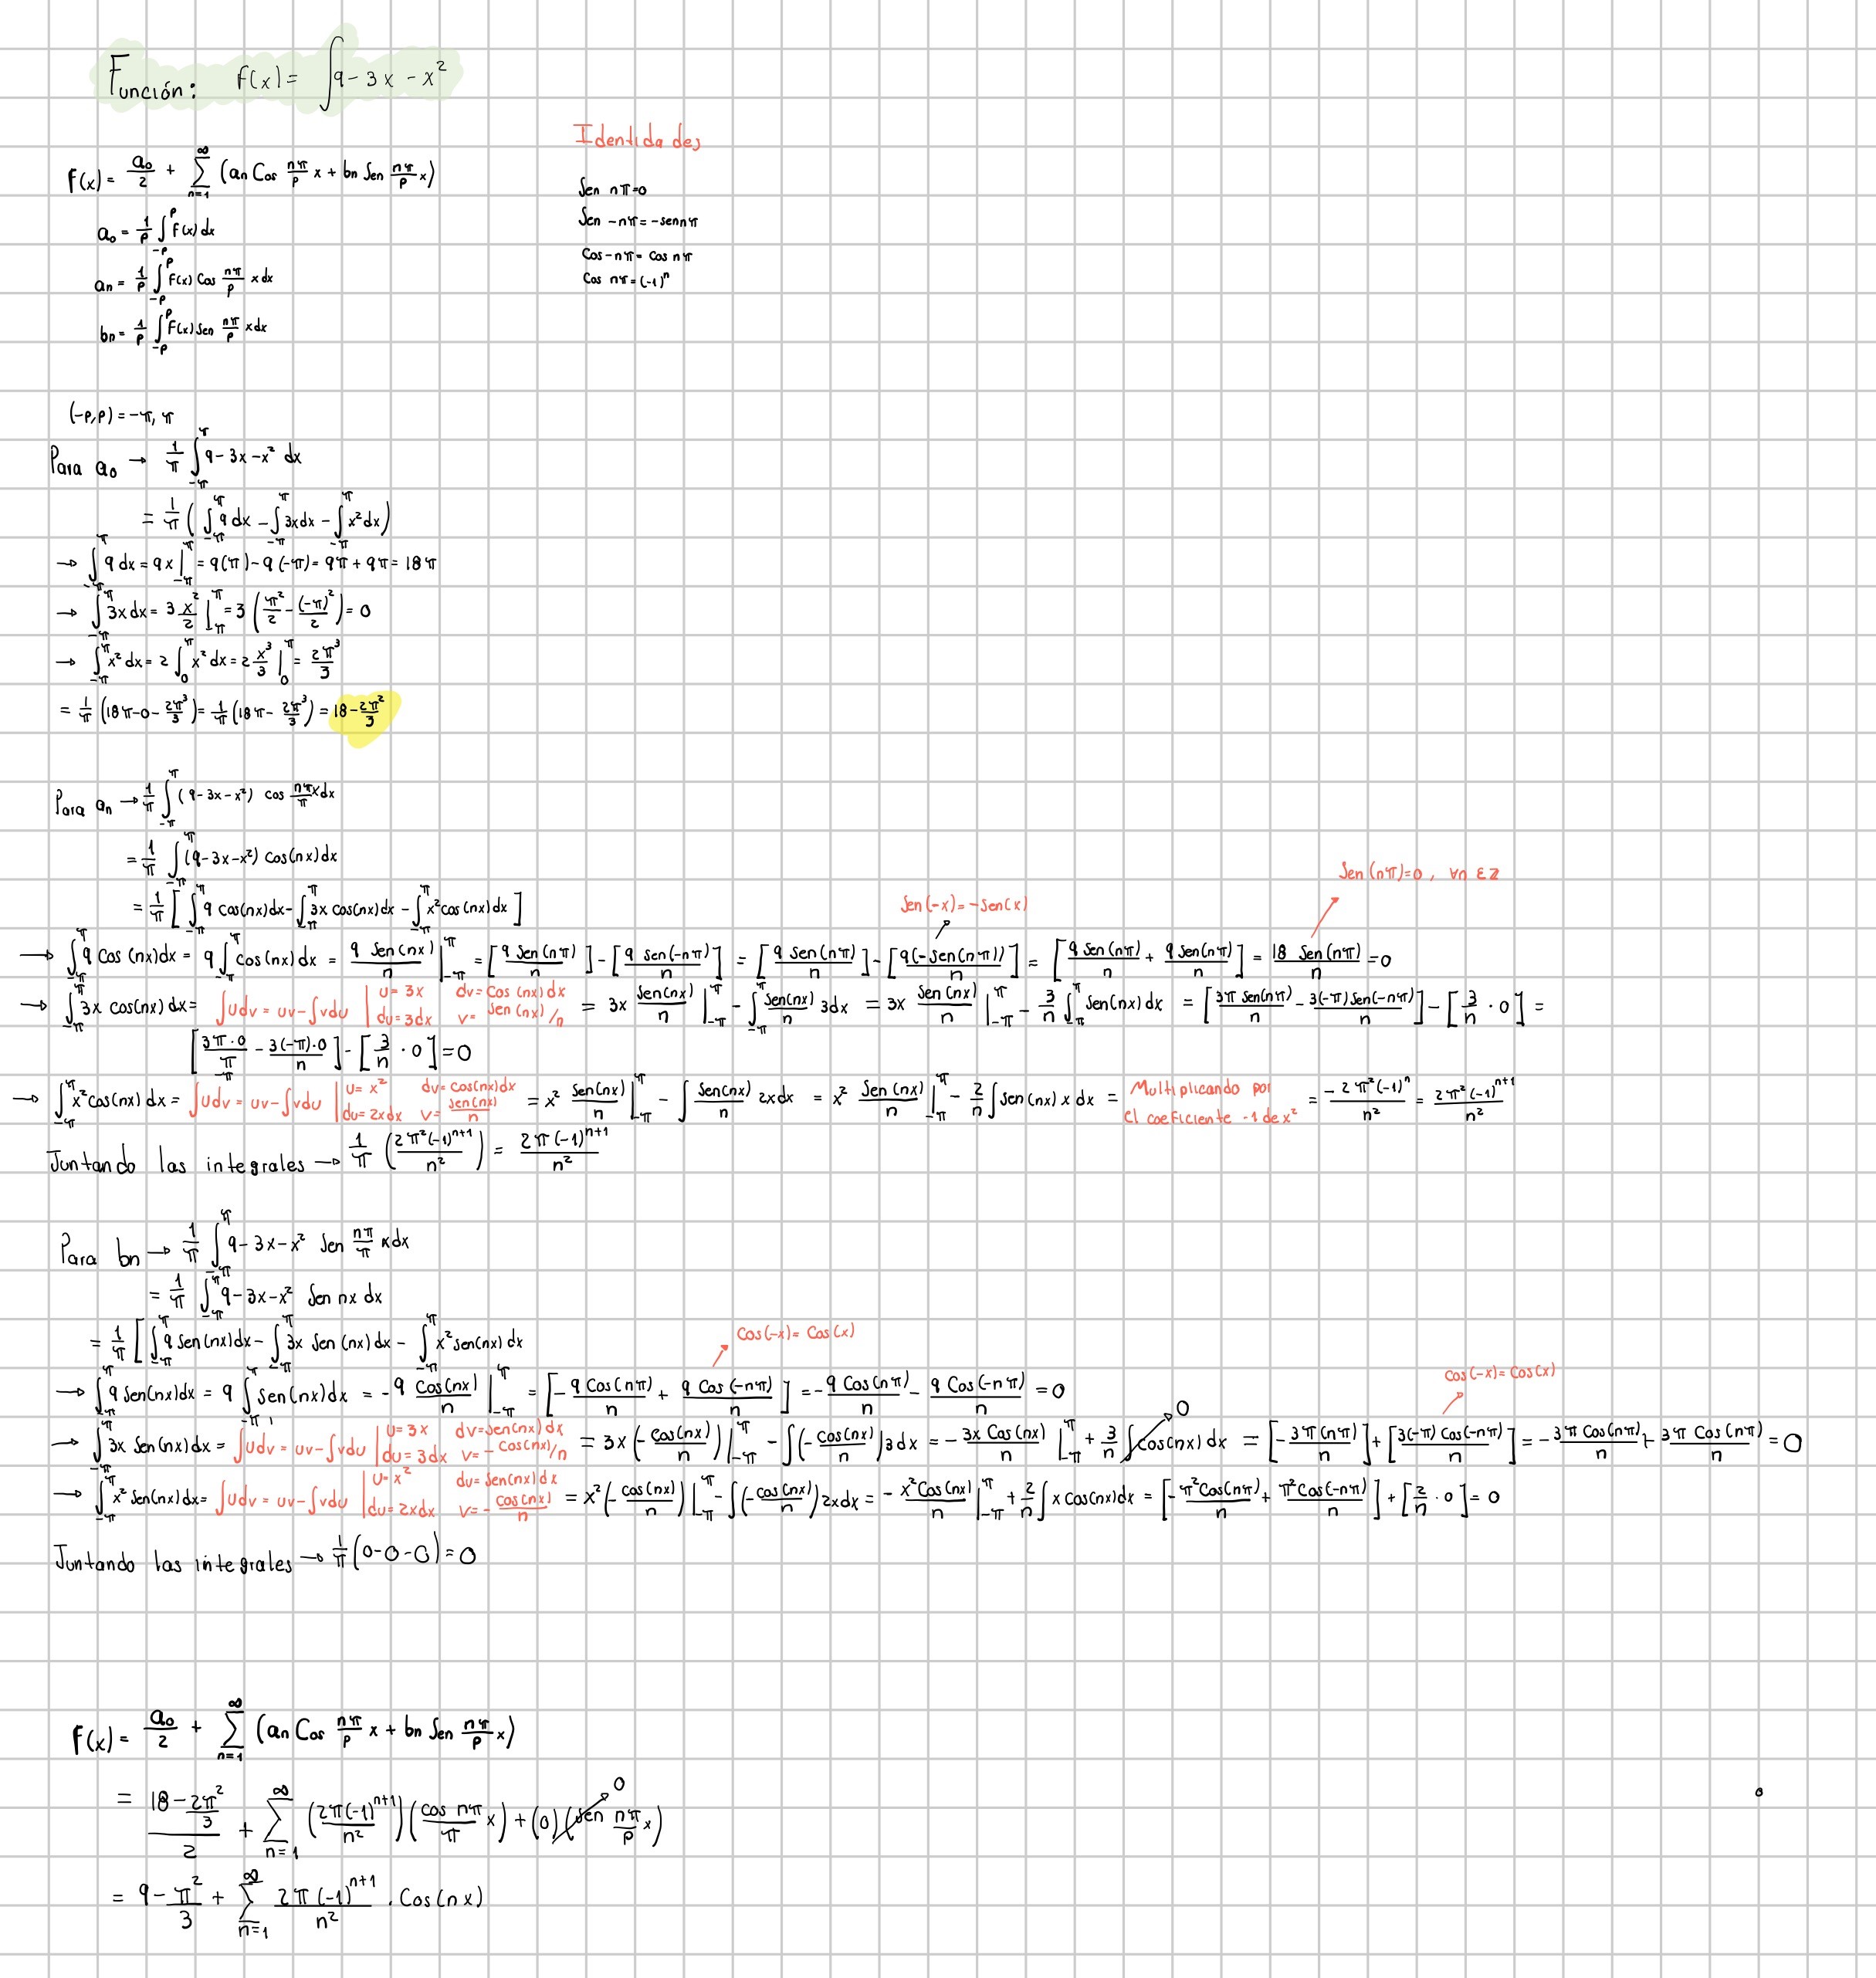 Función: f(x) = ∫ 9 - 3x - x²
Identidades
f(x) = a₀/2 + Σ_{n=1}^{∞} (an Cos nπ/p x + bn Sen nπ/p x)
Sen nπ=0
Sen -nπ = -sen nπ
a₀ = 1/p ∫_{-p}^{p} f(x) dx
Cos -nπ = Cos nπ
an = 1/p ∫_{-p}^{p} f(x) Cos nπ/p x dx
Cos nπ = (-1)ⁿ
bn = 1/p ∫_{-p}^{p} f(x) Sen nπ/p x dx
(-p,p) = -π, π
Para a₀ → 1/π ∫_{-π}^{π} 9 - 3x - x² dx
= 1/π ( ∫_{-π}^{π} 9 dx - ∫_{-π}^{π} 3x dx - ∫_{-π}^{π} x² dx )
→ ∫_{-π}^{π} 9 dx = 9x |_{-π}^{π} = 9(π) - 9(-π) = 9π + 9π = 18π
→ ∫_{-π}^{π} 3x dx = 3 x²/2 |_{-π}^{π} = 3 ( π²/2 - (-π)²/2 ) = 0
→ ∫_{-π}^{π} x² dx = 2 ∫_{0}^{π} x² dx = 2 x³/3 |_{0}^{π} = 2π³/3
= 1/π (18π - 0 - 2π³/3) = 1/π (18π - 2π³/3) = 18 - 2π²/3
Para an → 1/π ∫_{-π}^{π} (9 - 3x - x²) cos nπ/π x dx
= 1/π ∫_{-π}^{π} (9 - 3x - x²) cos(nx) dx
Sen (nπ)=0, ∀n ∈ Z
= 1/π [ ∫_{-π}^{π} 9 cos(nx) dx - ∫_{-π}^{π} 3x cos(nx) dx - ∫_{-π}^{π} x² cos(nx) dx ]
Sen(-x) = -Sen(x)
→ ∫_{-π}^{π} 9 Cos (nx) dx = 9 ∫_{-π}^{π} cos(nx) dx = 9 Sen(nx)/n |_{-π}^{π} = [9 Sen(nπ)/n] - [9 sen(-nπ)/n] = [9 Sen(nπ)/n] - [9(-Sen(nπ))/n] = [9 Sen(nπ)/n + 9 Sen(nπ)/n] = 18 Sen(nπ)/n = 0
→ ∫_{-π}^{π} 3x cos(nx) dx = ∫udv = uv - ∫vdu | u = 3x dv = Cos (nx) dx du = 3dx v = Sen (nx)/n = 3x Sen(nx)/n |_{-π}^{π} - ∫_{-π}^{π} Sen(nx)/n 3dx = 3x Sen(nx)/n |_{-π}^{π} - 3/n ∫_{-π}^{π} Sen(nx) dx = [3π Sen(nπ)/n - 3(-π) Sen(-nπ)/n] - [3/n · 0] =
[3π·0/π - 3(-π)·0/n] - [3/n · 0] = 0
→ ∫_{-π}^{π} x² cos(nx) dx = ∫udv = uv - ∫vdu | u = x² dv = cos(nx) dx du = 2xdx v = sen(nx)/n = x² Sen(nx)/n |_{-π}^{π} - ∫ Sen(nx)/n 2xdx = x² Sen(nx)/n |_{-π}^{π} - 2/n ∫ Sen(nx) x dx = Multiplicando por el coeficiente -1 de x² = -2π²(-1)ⁿ/n² = 2π²(-1)ⁿ⁺¹/n²
Juntando las integrales → 1/π (2π²(-1)ⁿ⁺¹/n²) = 2π(-1)ⁿ⁺¹/n²
Para bn → 1/π ∫_{-π}^{π} 9 - 3x - x² Sen nπ/π x dx
= 1/π ∫_{-π}^{π} 9 - 3x - x² Sen nx dx
= 1/π [ ∫_{-π}^{π} 9 Sen(nx) dx - ∫_{-π}^{π} 3x Sen (nx) dx - ∫_{-π}^{π} x² sen(nx) dx
Cos(-x) = Cos(x)
→ ∫_{-π}^{π} 9 Sen(nx) dx = 9 ∫_{-π}^{π} Sen(nx) dx = -9 Cos(nx)/n |_{-π}^{π} = [-9 Cos(nπ)/n + 9 Cos(-nπ)/n] = -9 Cos(nπ)/n - 9 Cos(-nπ)/n = 0
Cos(-x) = Cos(x)
→ ∫_{-π}^{π} 3x Sen(nx) dx = ∫udv = uv - ∫vdu | u = 3x dv = sen(nx) dx du = 3dx v = -Cos(nx)/n = 3x (-cos(nx)/n) |_{-π}^{π} - ∫(-cos(nx)/n) 3dx = -3x Cos(nx)/n |_{-π}^{π} + 3/n ∫cos(nx) dx 0 = [-3π(nπ)/n] + [3(-π) Cos(-nπ)/n] = -3π Cos(nπ)/n + 3π Cos(nπ)/n = 0
→ ∫_{-π}^{π} x² Sen(nx) dx = ∫udv = uv - ∫vdu | u = x² du = Sen(nx) dx du = 2xdx v = -cos(nx)/n = x² (-cos(nx)/n) |_{-π}^{π} - ∫(-cos(nx)/n) 2xdx = -x² Cos(nx)/n |_{-π}^{π} + 2/n ∫ x cos(nx) dx = [-π² Cos(nπ)/n + π² Cos(-nπ)/n] + [2/n · 0] = 0
Juntando las integrales → 1/π (0-0-0) = 0
f(x) = a₀/2 + Σ_{n=1}^{∞} (an Cos nπ/p x + bn Sen nπ/p x)
= (18 - 2π²/3)/2 + Σ_{n=1}^{∞} (2π(-1)ⁿ⁺¹/n²) (cos nπ/π x) + (0) (sen nπ/p x) 0
= 9 - π²/3 + Σ_{n=1}^{∞} 2π(-1)ⁿ⁺¹/n² · Cos(nx)